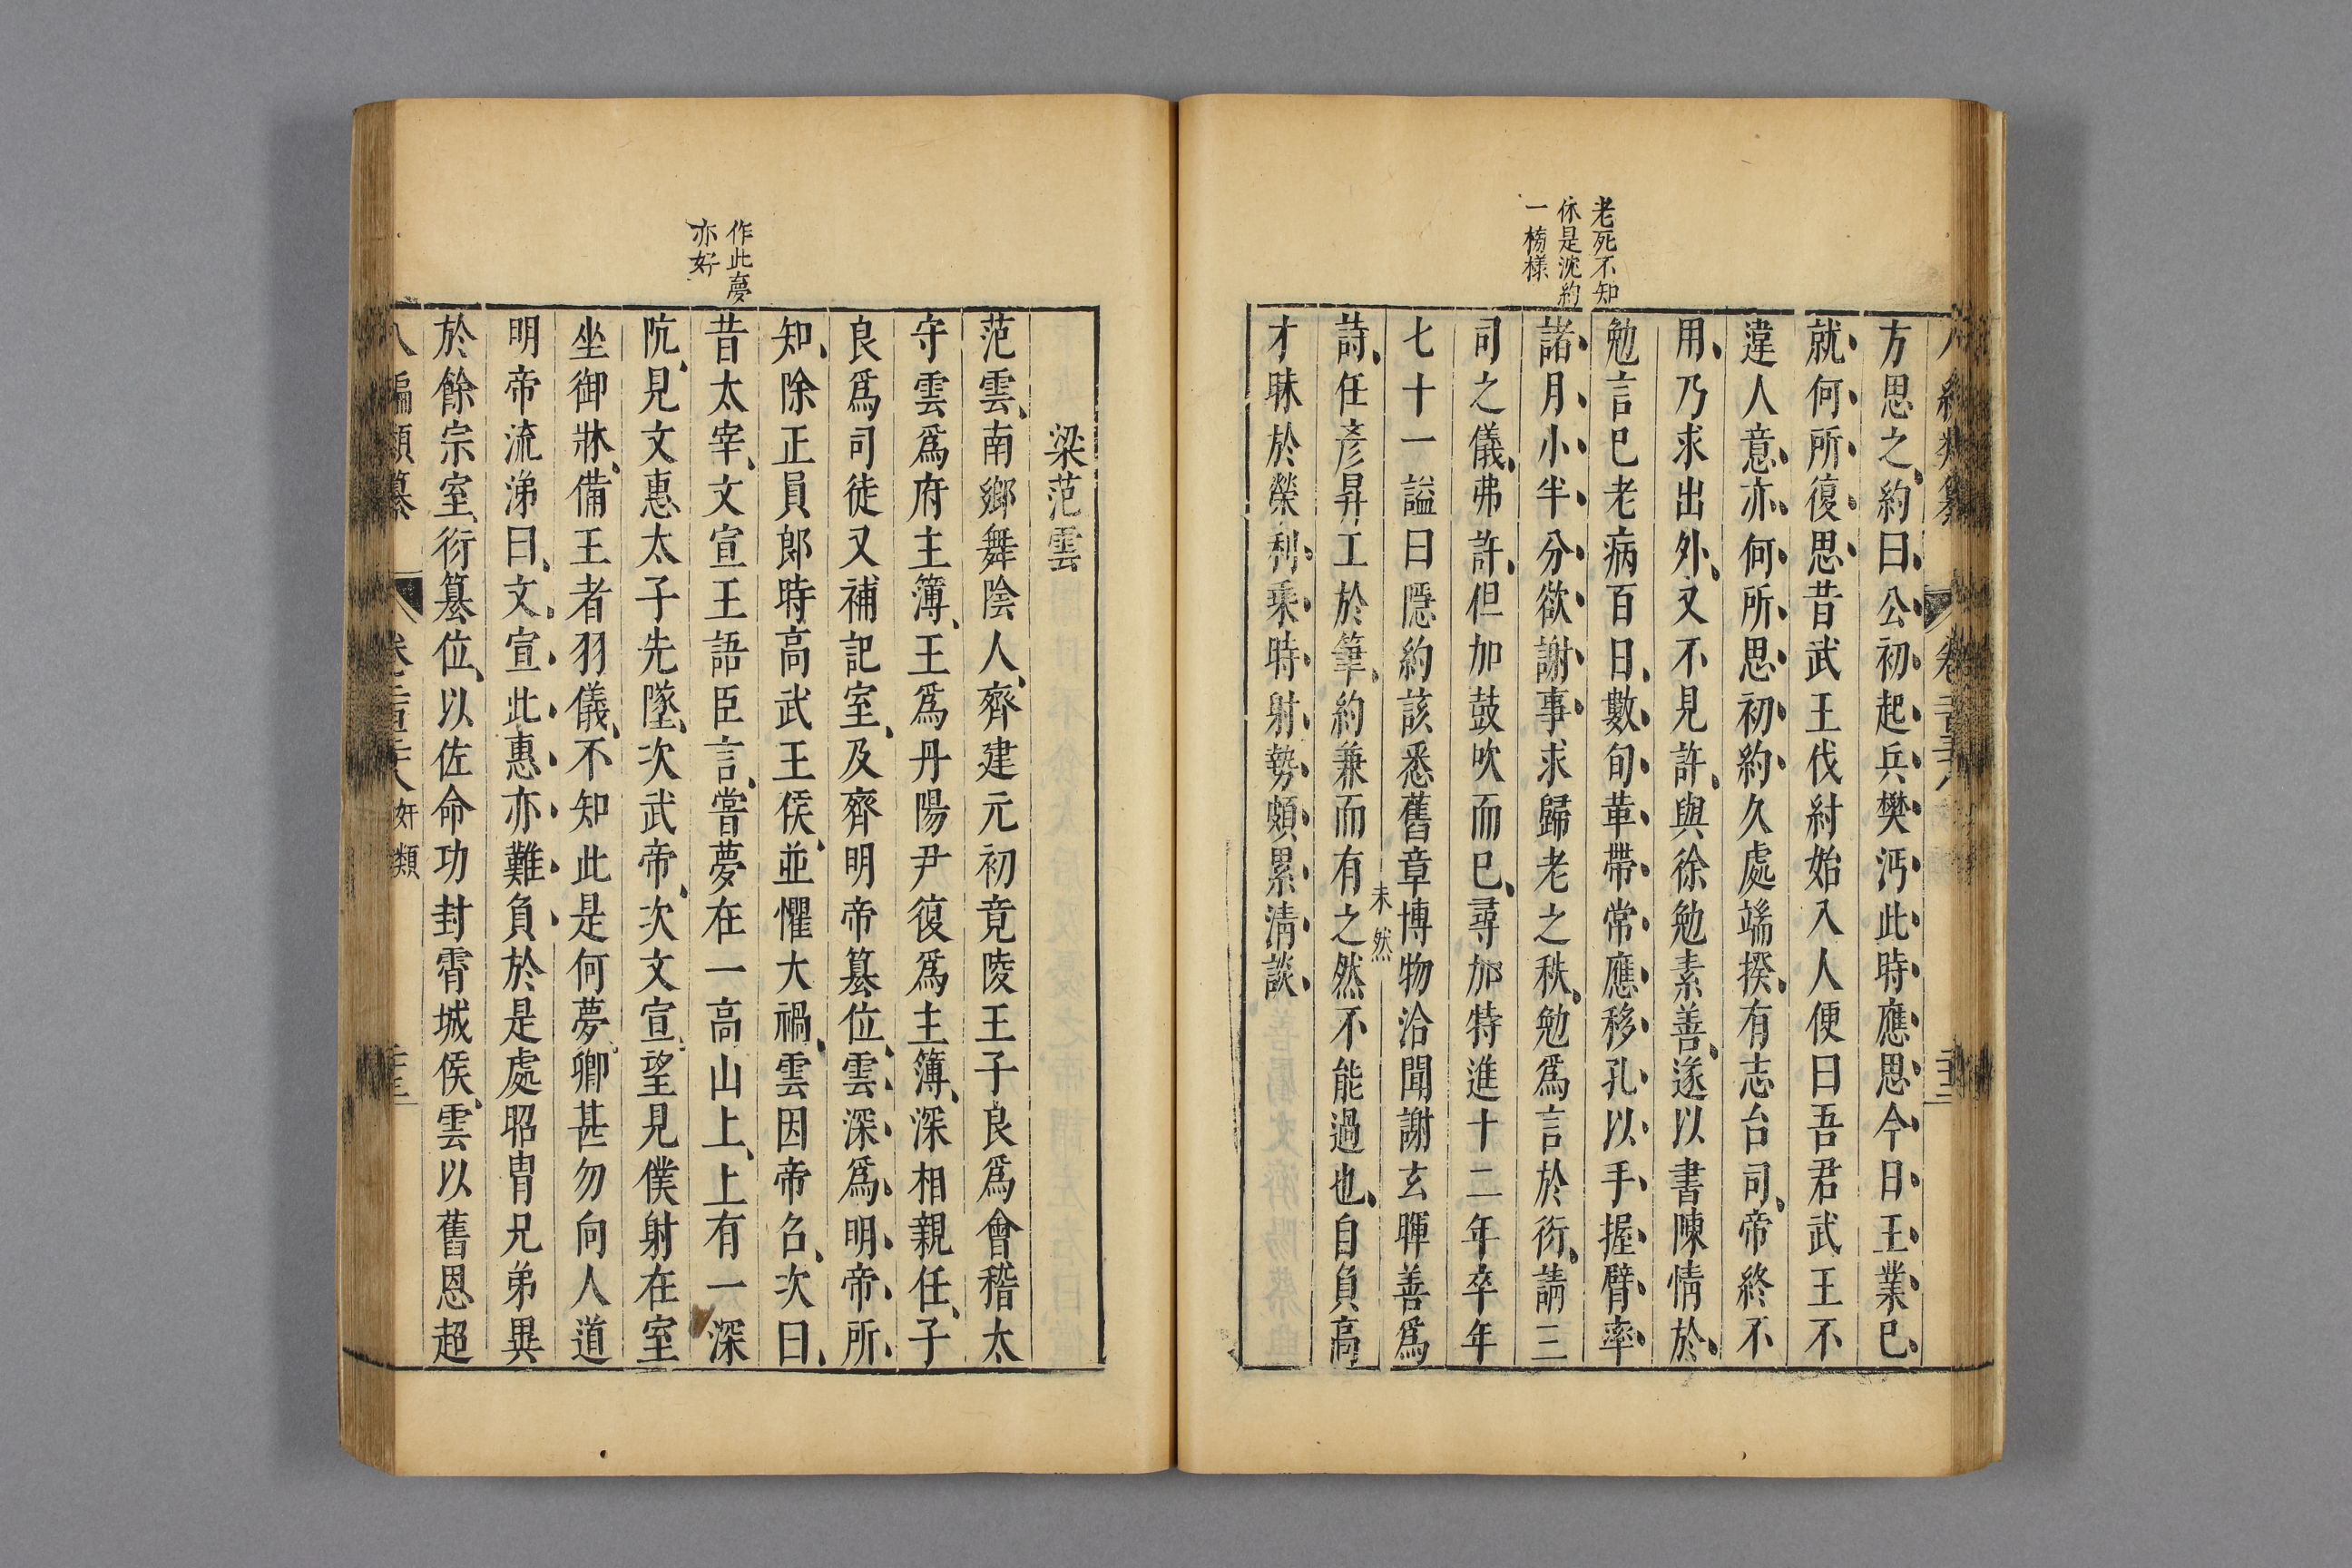 老死不知
休是沈約
一榜樣
方思之約曰公初起兵樊沔此時應思今日王業已
就何所復思昔武王伐紂始入人便曰吾君武王不
違人意亦何所思初約久處端揆有志台司帝終不
用乃求出外又不見許與徐勉素善遂以書陳情於
勉言已老病百日數旬革帶常應移孔以手握臂率
諸月小半分欲謝事求歸老之秩勉爲言於衍請三
司之儀弗許但加鼓吹而已尋加特進十二年卒年
七十一謚曰隱約該悉舊章博物洽聞謝玄暉善爲
未然
詩任彥昇工於筆約兼而有之然不能過也自負高
才昧於榮利乘時射勢頗累清談
作此夢
亦好
梁范雲
范雲南鄉舞陰人齊建元初竟陵王子良爲會稽太
守雲爲府主簿王爲丹陽尹復爲主簿深相親任子
良爲司徒又補記室及齊明帝篡位雲深爲明帝所
知除正員郎時高武王侯並懼大禍雲因帝召次曰
昔太宰文宣王語臣言嘗夢在一高山上上有一深
阬見文惠太子先墜次武帝次文宣望見僕射在室
坐御牀備王者羽儀不知此是何夢卿甚勿向人道
明帝流涕曰文宣此惠亦難負於是處昭胄兄弟異
於餘宗室衍篡位以佐命功封霄城侯雲以舊恩超
八編類纂 奸類